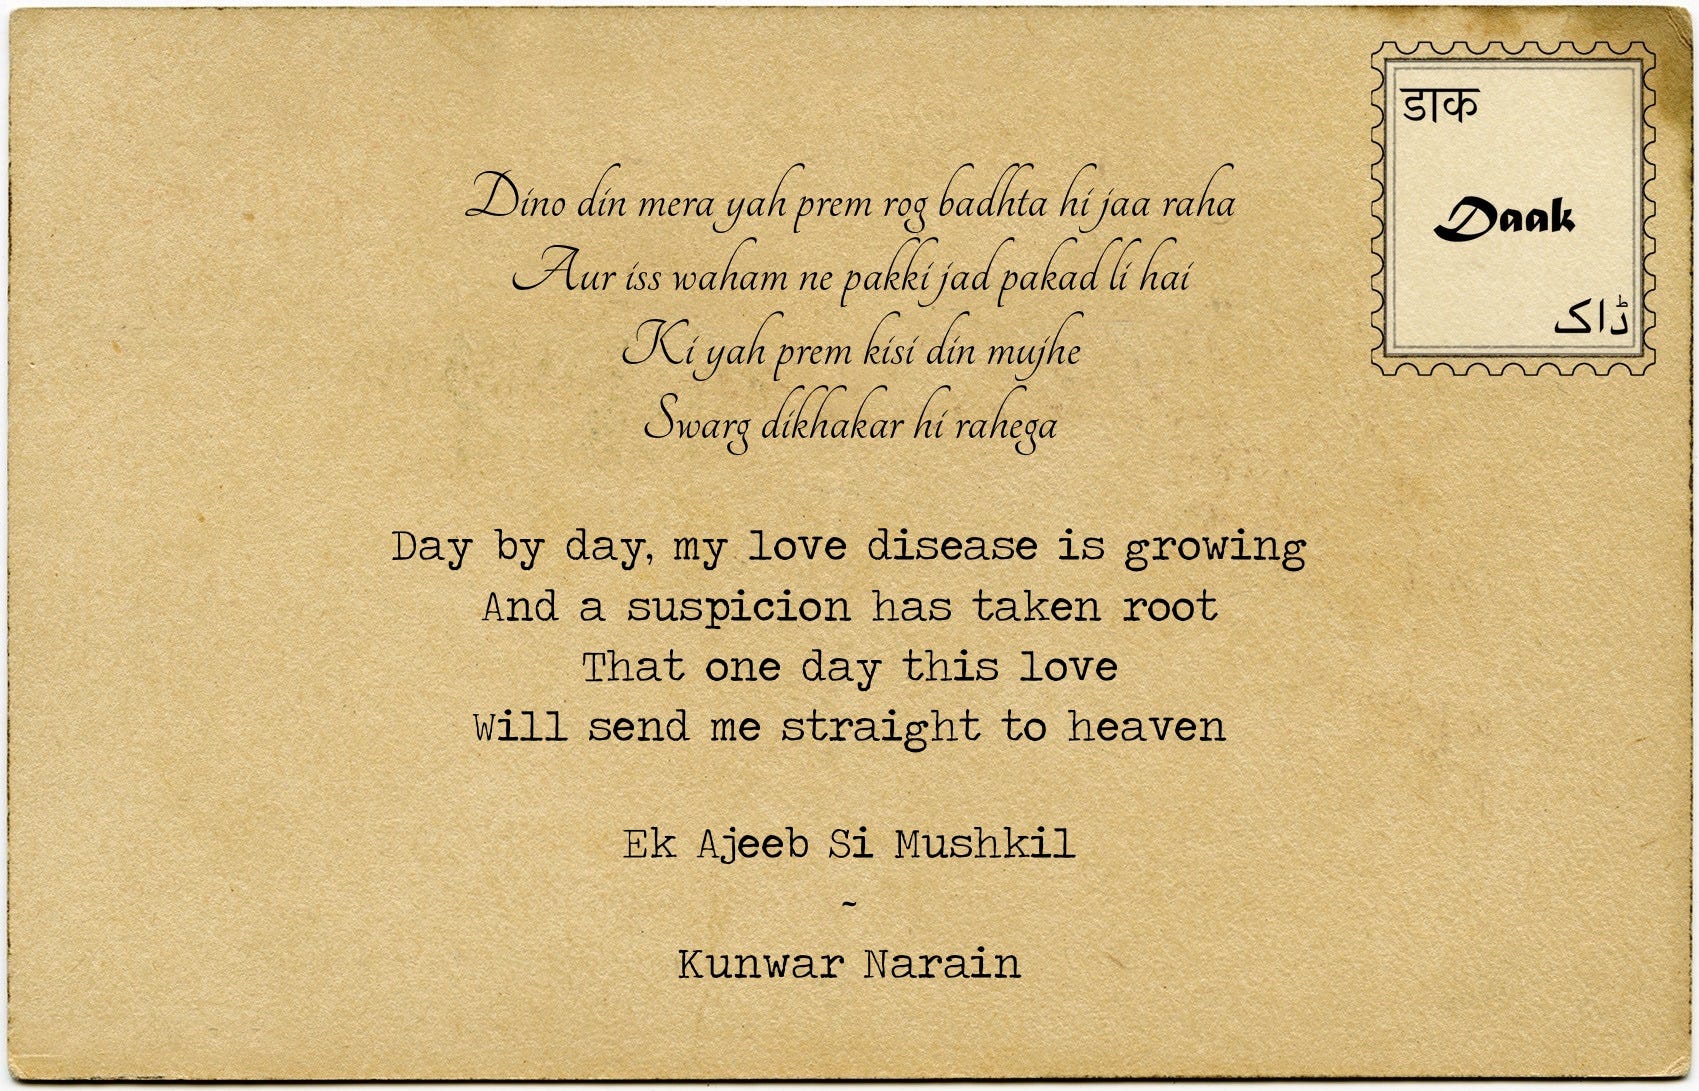 डाक
Daak
ڈاک
Dino din mera yah prem rog badhta hi jaa raha
Aur iss waham ne pakki jad pakad li hai
Ki yah prem kisi din mujhe
Swarg dikhakar hi rahega
Day by day, my love disease is growing
And a suspicion has taken root
That one day this love
Will send me straight to heaven
Ek Ajeeb Si Mushkil
~
Kunwar Narain